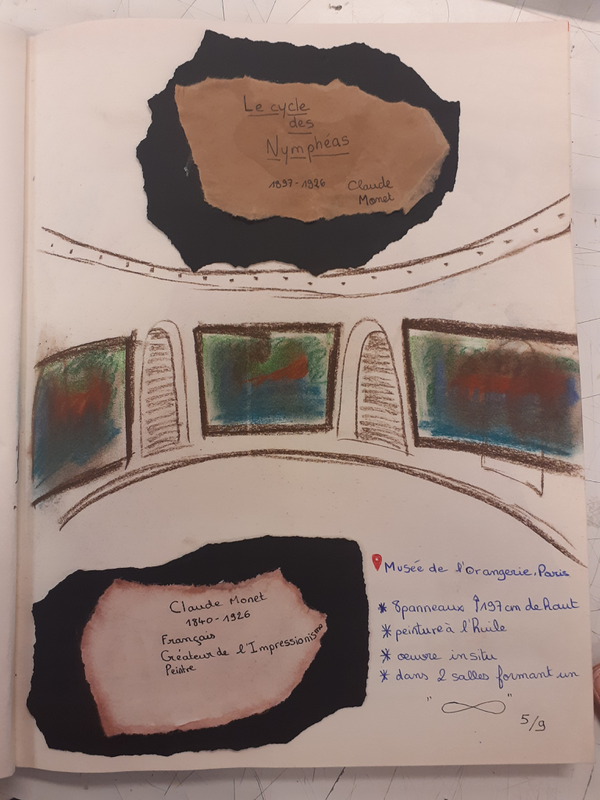 Le cycle
des
Nymphéas
1897-1926 Claude
Monet
Claude Monet
1840-1926
Français
Créateur de l'Impressionisme
Peintre
Musée de l'Orangerie, Paris
* 8 panneaux ↑197 cm de haut
* peinture à l'huile
* œuvre in situ
* dans 2 salles formant un
"∞"
5/9